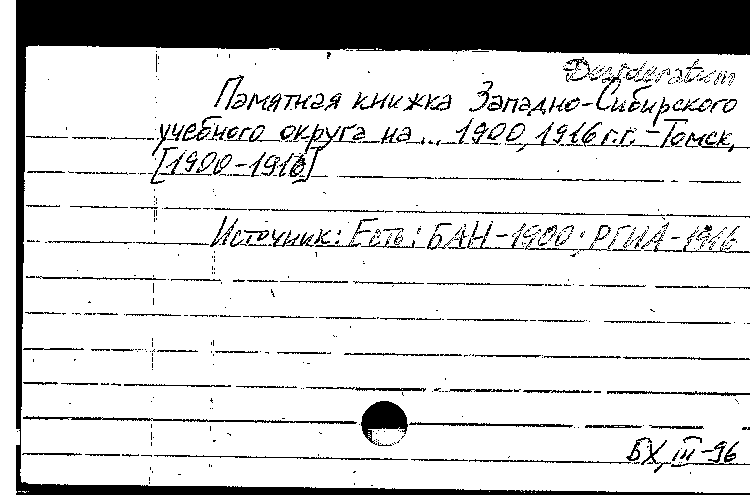 Desideratum
Памятная книжка Западно-Сибирского
учебного округа на... 1900, 1916 г.г. - Томск,
[1900-1916]
Источник: Есть: БАН - 1900; РГИА - 1916
БХ, III-96